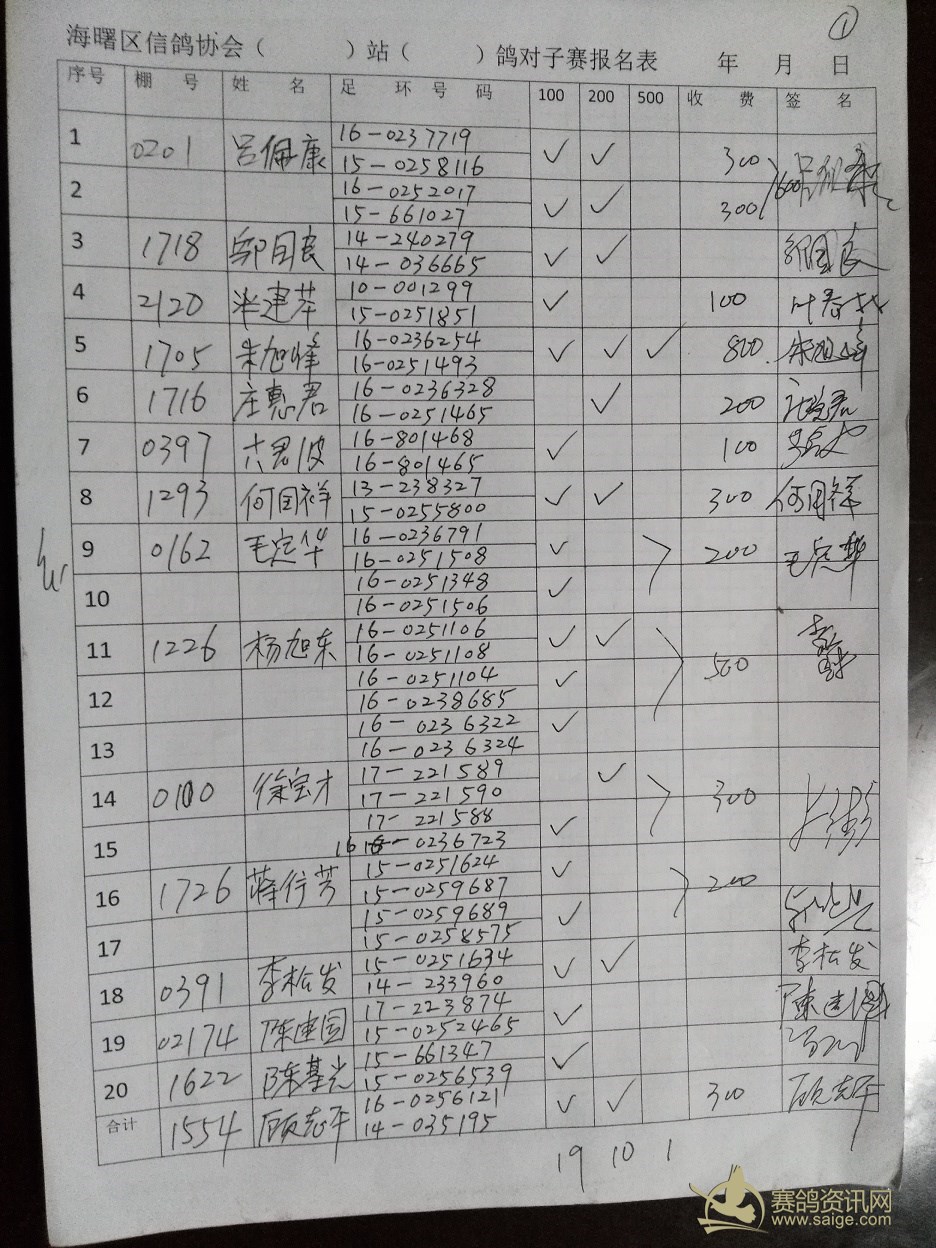 ①
海曙区信鸽协会（ ）站（ ）鸽对子赛报名表 年 月 日
序号 棚 号 姓 名 足 环 号 码 100 200 500 收 费 签 名
1 0201 吕佩康 16-0237719 ✓ ✓ 300
15-0258116
2 16-0252017 ✓ ✓ 300 600
15-661027
3 1718 邬国良 14-240279 ✓ ✓ 邬国良
14-036665
4 2120 10-001299 ✓ 100
15-0251851
5 1705 朱旭峰 16-0236254 ✓ ✓ ✓ 800 朱旭峰
16-0251493
6 1716 庄惠君 16-0236328 ✓ 200
16-0251465
7 0397 16-801468 ✓ 100
16-801465
8 1293 何国祥 13-238327 ✓ ✓ 300 何国祥
15-0255800
9 0162 毛定华 16-0236791 ✓ 200 毛定华
16-0251508
10 16-0251348 ✓
16-0251506
11 1226 杨旭东 16-0251106 ✓ ✓ 500
16-0251108
12 16-0251104 ✓
16-0238685
13 16-0236322 ✓
16-0236324
14 0100 徐宝才 17-221589 ✓ 300
17-221590
15 17-221588 ✓
16-0236723
16 1726 15-0251624 ✓ 200
15-0259687
17 15-0259689 ✓
15-0258575
18 0391 李松发 15-0251634 ✓ ✓ 李松发
14-233960
19 02174 陈建国 17-223874 ✓ 陈建国
15-0252465
20 1622 陈基光 15-661347 ✓
15-0256539
合计 1554 顾志平 16-0256121 ✓ ✓ 300 顾志平
14-035195
19 10 1
赛鸽资讯网
www.saige.com